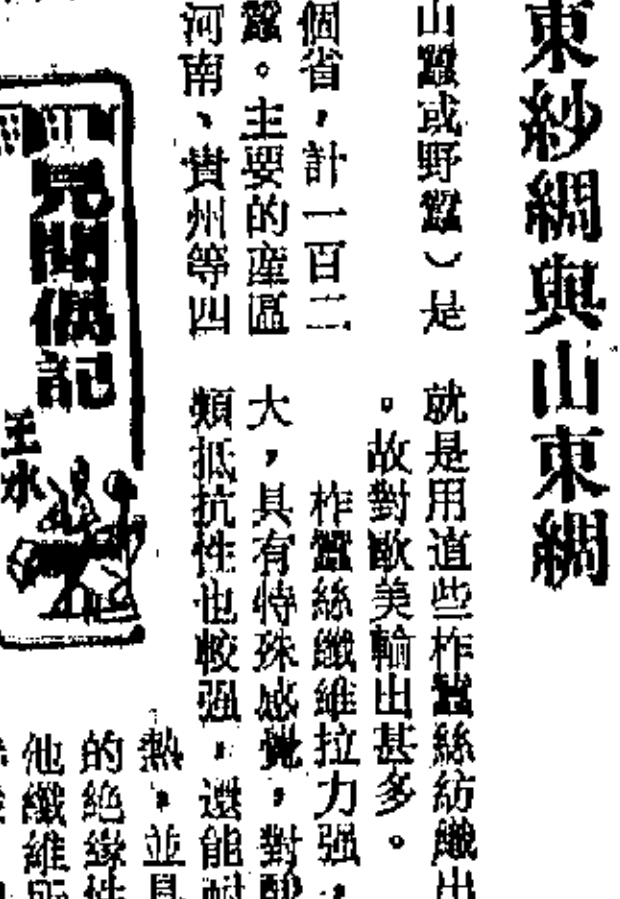 東紗綢與山東綢
山蠶或野蠶）是
個省，計一百二
蠶。主要的產區
河南、貴州等四
就是用這些柞蠶絲紡織出
。故對歐美輸出甚多。
柞蠶絲纖維拉力强，
大，具有特殊感覺，對酸
類抵抗性也較强。還能耐
熱，並具
的絶緣性
他纖維所
見聞偶記
王水